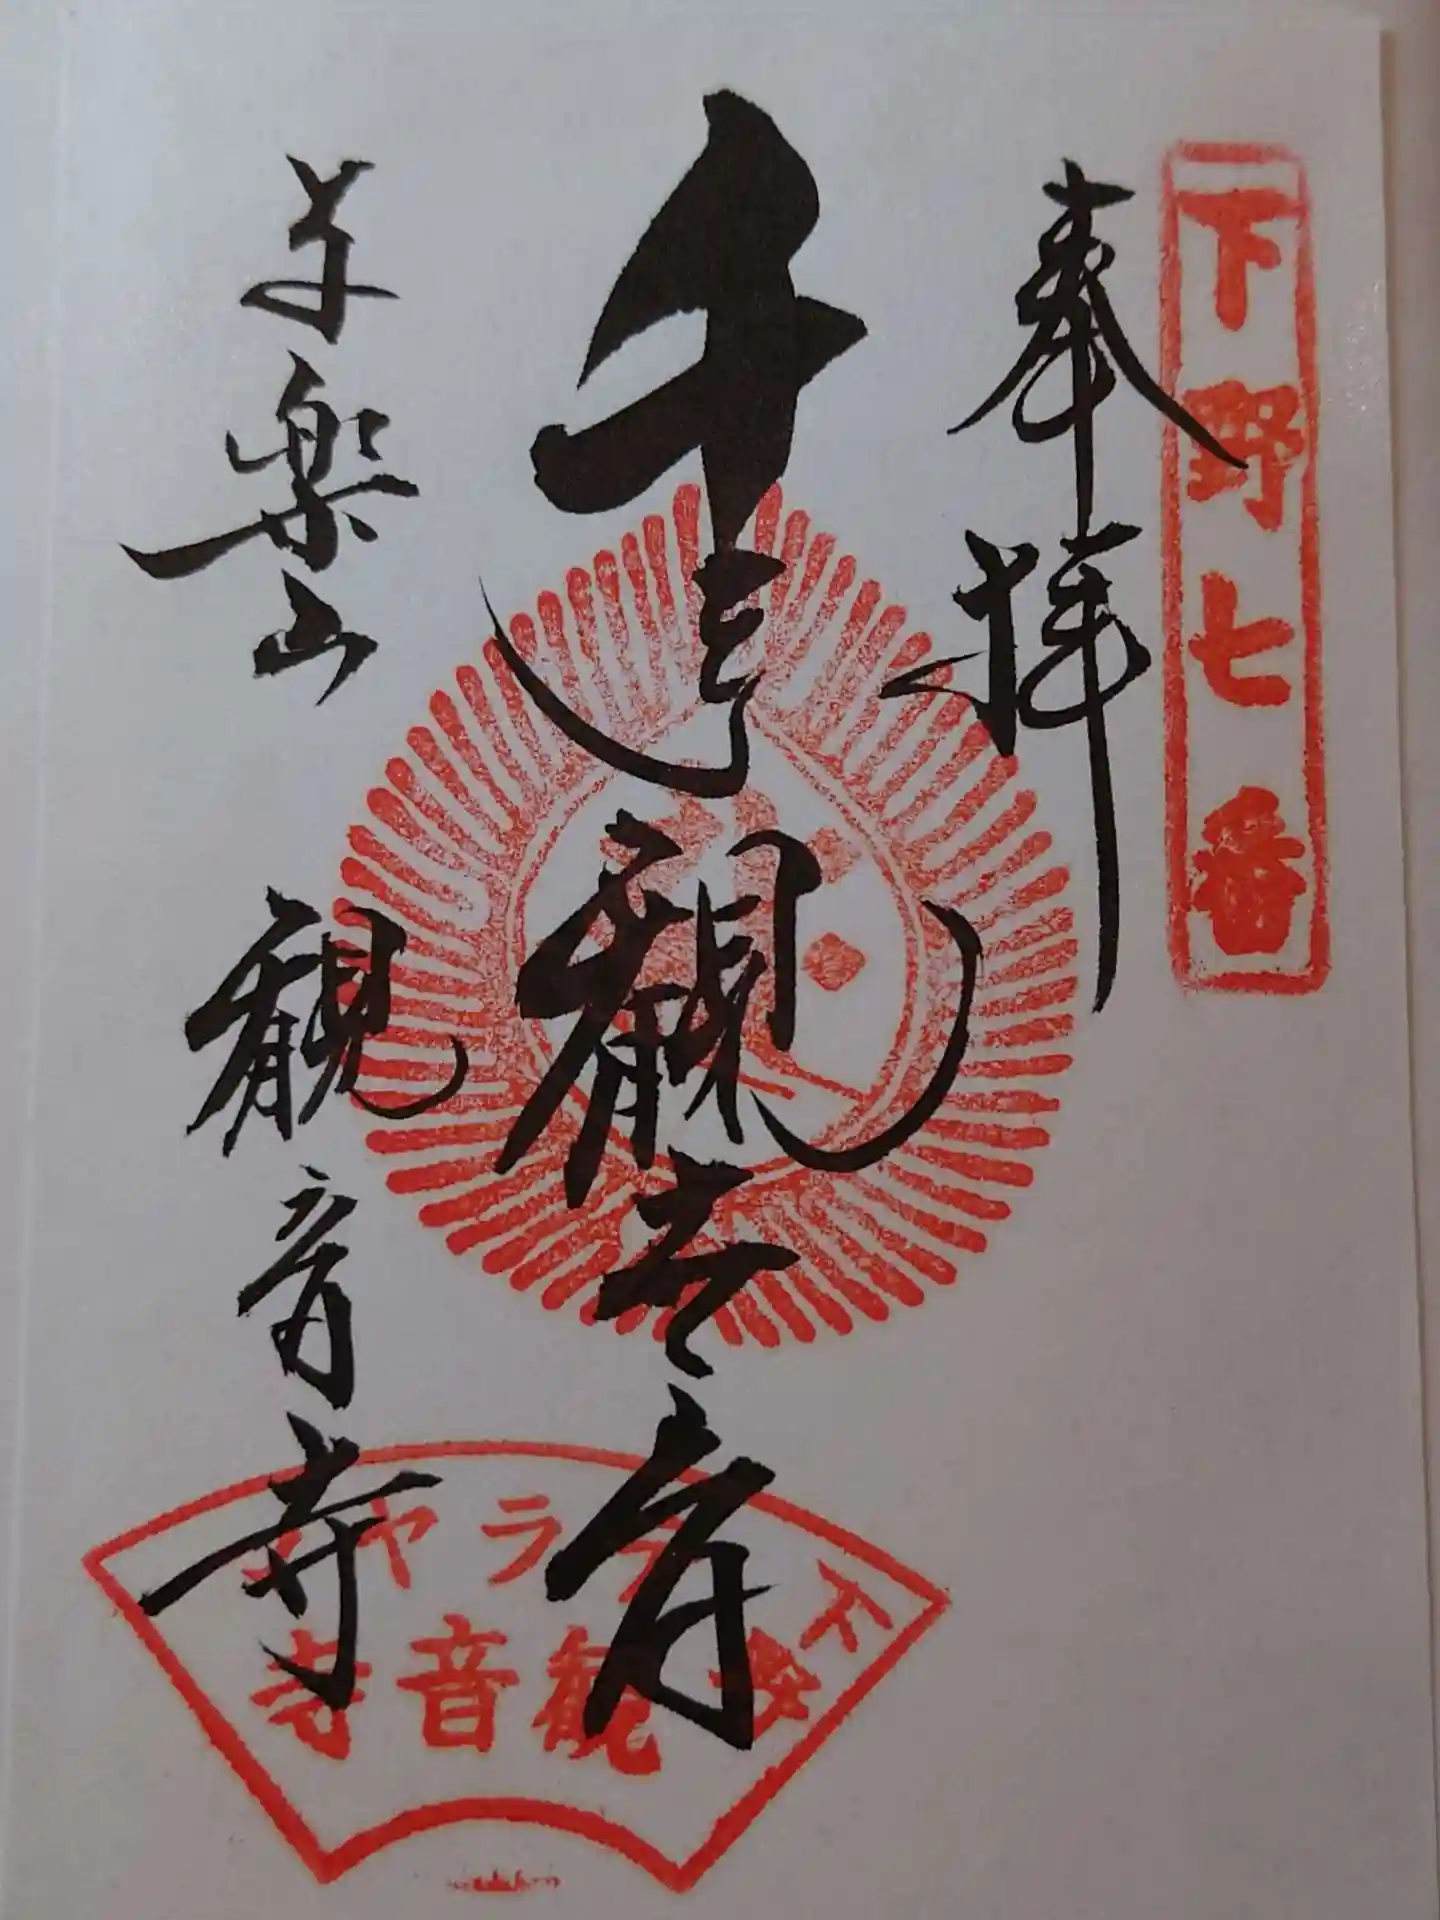 下野七番
奉拝
千手観世音
与楽山
観音寺
テラヤマ
観音寺